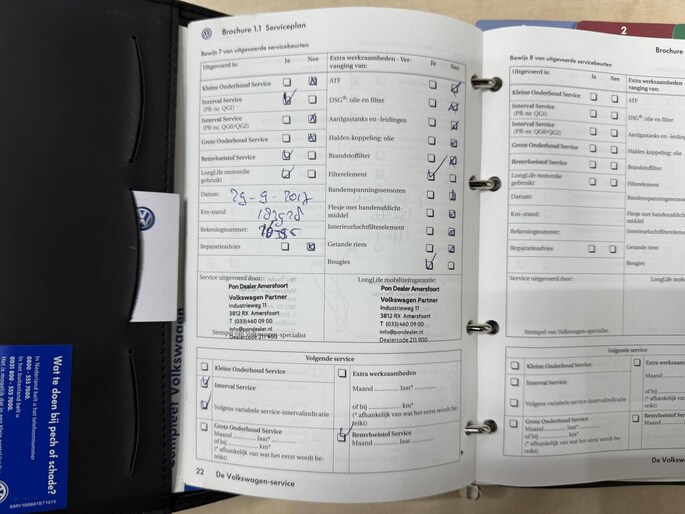 Brochure 1.1 Serviceplan
Bewijs 7 van uitgevoerde servicebeurten
Uitgevoerd is: Ja Nee
Kleine Onderhoud Service
Interval Service
(PR-nr. QG1)
Interval Service
(PR-nr. QG0/QG2)
Grote Onderhoud Service
Remvloeistof Service
LongLife motorolie
gebruikt
Datum: 29-9-2017
Km-stand:
Rekeningnummer:
Reparatieadvies
Extra werkzaamheden - Ver-
vanging van: Ja Nee
ATF
DSG®: olie en filter
Aardgastanks en -leidingen
Haldex-koppeling: olie
Brandstoffilter
Filterelement
Bandenspanningssensoren
Flesje met bandenafdicht-
middel
Interieurluchtfilterelement
Getande riem
Bougies
Service uitgevoerd door:
Pon Dealer Amersfoort
Volkswagen Partner
Industrieweg 11
3812 RX Amersfoort
T (033)460 09 00
info@pondealer.nl
Dealercode 211 900
Stempel van Volkswagen-specialist
LongLife mobiliteitsgarantie:
Pon Dealer Amersfoort
Volkswagen Partner
Industrieweg 11
3812 RX Amersfoort
T (033)460 09 00
info@pondealer.nl
Dealercode 211 900
Volgende service
Kleine Onderhoud Service
Interval Service
Volgens variabele service-intervalindicatie
Grote Onderhoud Service
Maand ........ Jaar* ........
(* afhankelijk van wat het eerst wordt be-
reikt)
Extra werkzaamheden
Maand ........ Jaar* ........
of bij ........ km*
(* afhankelijk van wat het eerst wordt be-
reikt)
Remvloeistof Service
Maand ........ Jaar ........
22 De Volkswagen-service
2
Brochure
Bewijs 8 van uitgevoerde servicebeurten
Uitgevoerd is: Ja Nee
Kleine Onderhoud Service
Interval Service
(PR-nr. QG1)
Interval Service
(PR-nr. QG0/QG2)
Grote Onderhoud Service
Remvloeistof Service
LongLife motorolie
gebruikt
Datum:
Km-stand:
Rekeningnummer:
Reparatieadvies
Extra werkzaamh
vanging van:
ATF
DSG®: olie en filter
Aardgastanks en -le
Haldex-koppeling: o
Brandstoffilter
Filterelement
Bandenspanningssen
Flesje met bandenaf
middel
Interieurluchtfilterele
Getande riem
Bougies
Service uitgevoerd door:
LongLife mo
Stempel van Volkswagen-specialist
Volgende service
Kleine Onderhoud Service
Interval Service
Volgens variabele service-intervalindicatie
Grote Onderhoud Service
Maand ........ Jaar* ........
of bij ........ km*
(* afhankelijk van wat het eerst wordt be-
reikt)
Extra werkz
Maand
of bij
(* afhankelijk
reikt)
Remvloeist
Maand
De Volks
Compleet Volkswagen
Wat te doen bij pech of schade?
In Nederland belt u het telefoonnummer
0800 - 555 7000.
In het buitenland belt u
0031 800 - 555 7000.